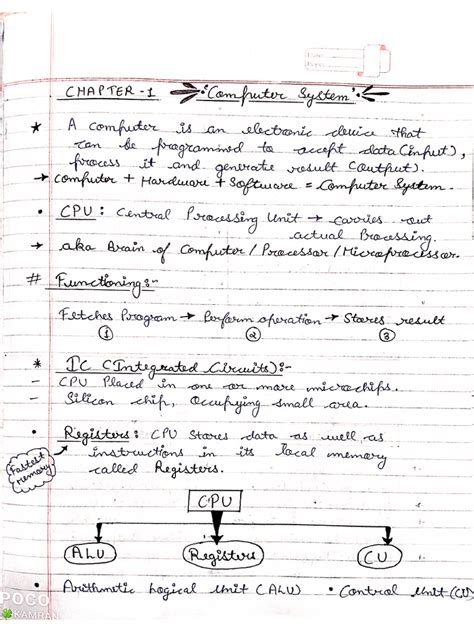 CHAPTER - 1 "Computer System"
★ A computer is an electronic device that
can be programmed to accept data (input),
process it and generate result (output).
→ Computer + Hardware + Software = Computer System.
• CPU : Central Processing Unit → carries out
actual Processing.
→ aka Brain of Computer / Processor / Microprocessor.
# Functioning :-
Fetches Program → Perform operation → Stores result
① ② ③
* IC (Integrated Circuits) :-
- CPU Placed in one or more microchips.
- Silicon chip, Occupying small area.
• Registers : CPU Stores data as well as
instructions in its local memory
called Registers.
Fastest
Memory
CPU
ALU Registers CU
• Arithmetic Logical Unit (ALU) • Control Unit (CU)
POCO
KAMRAN